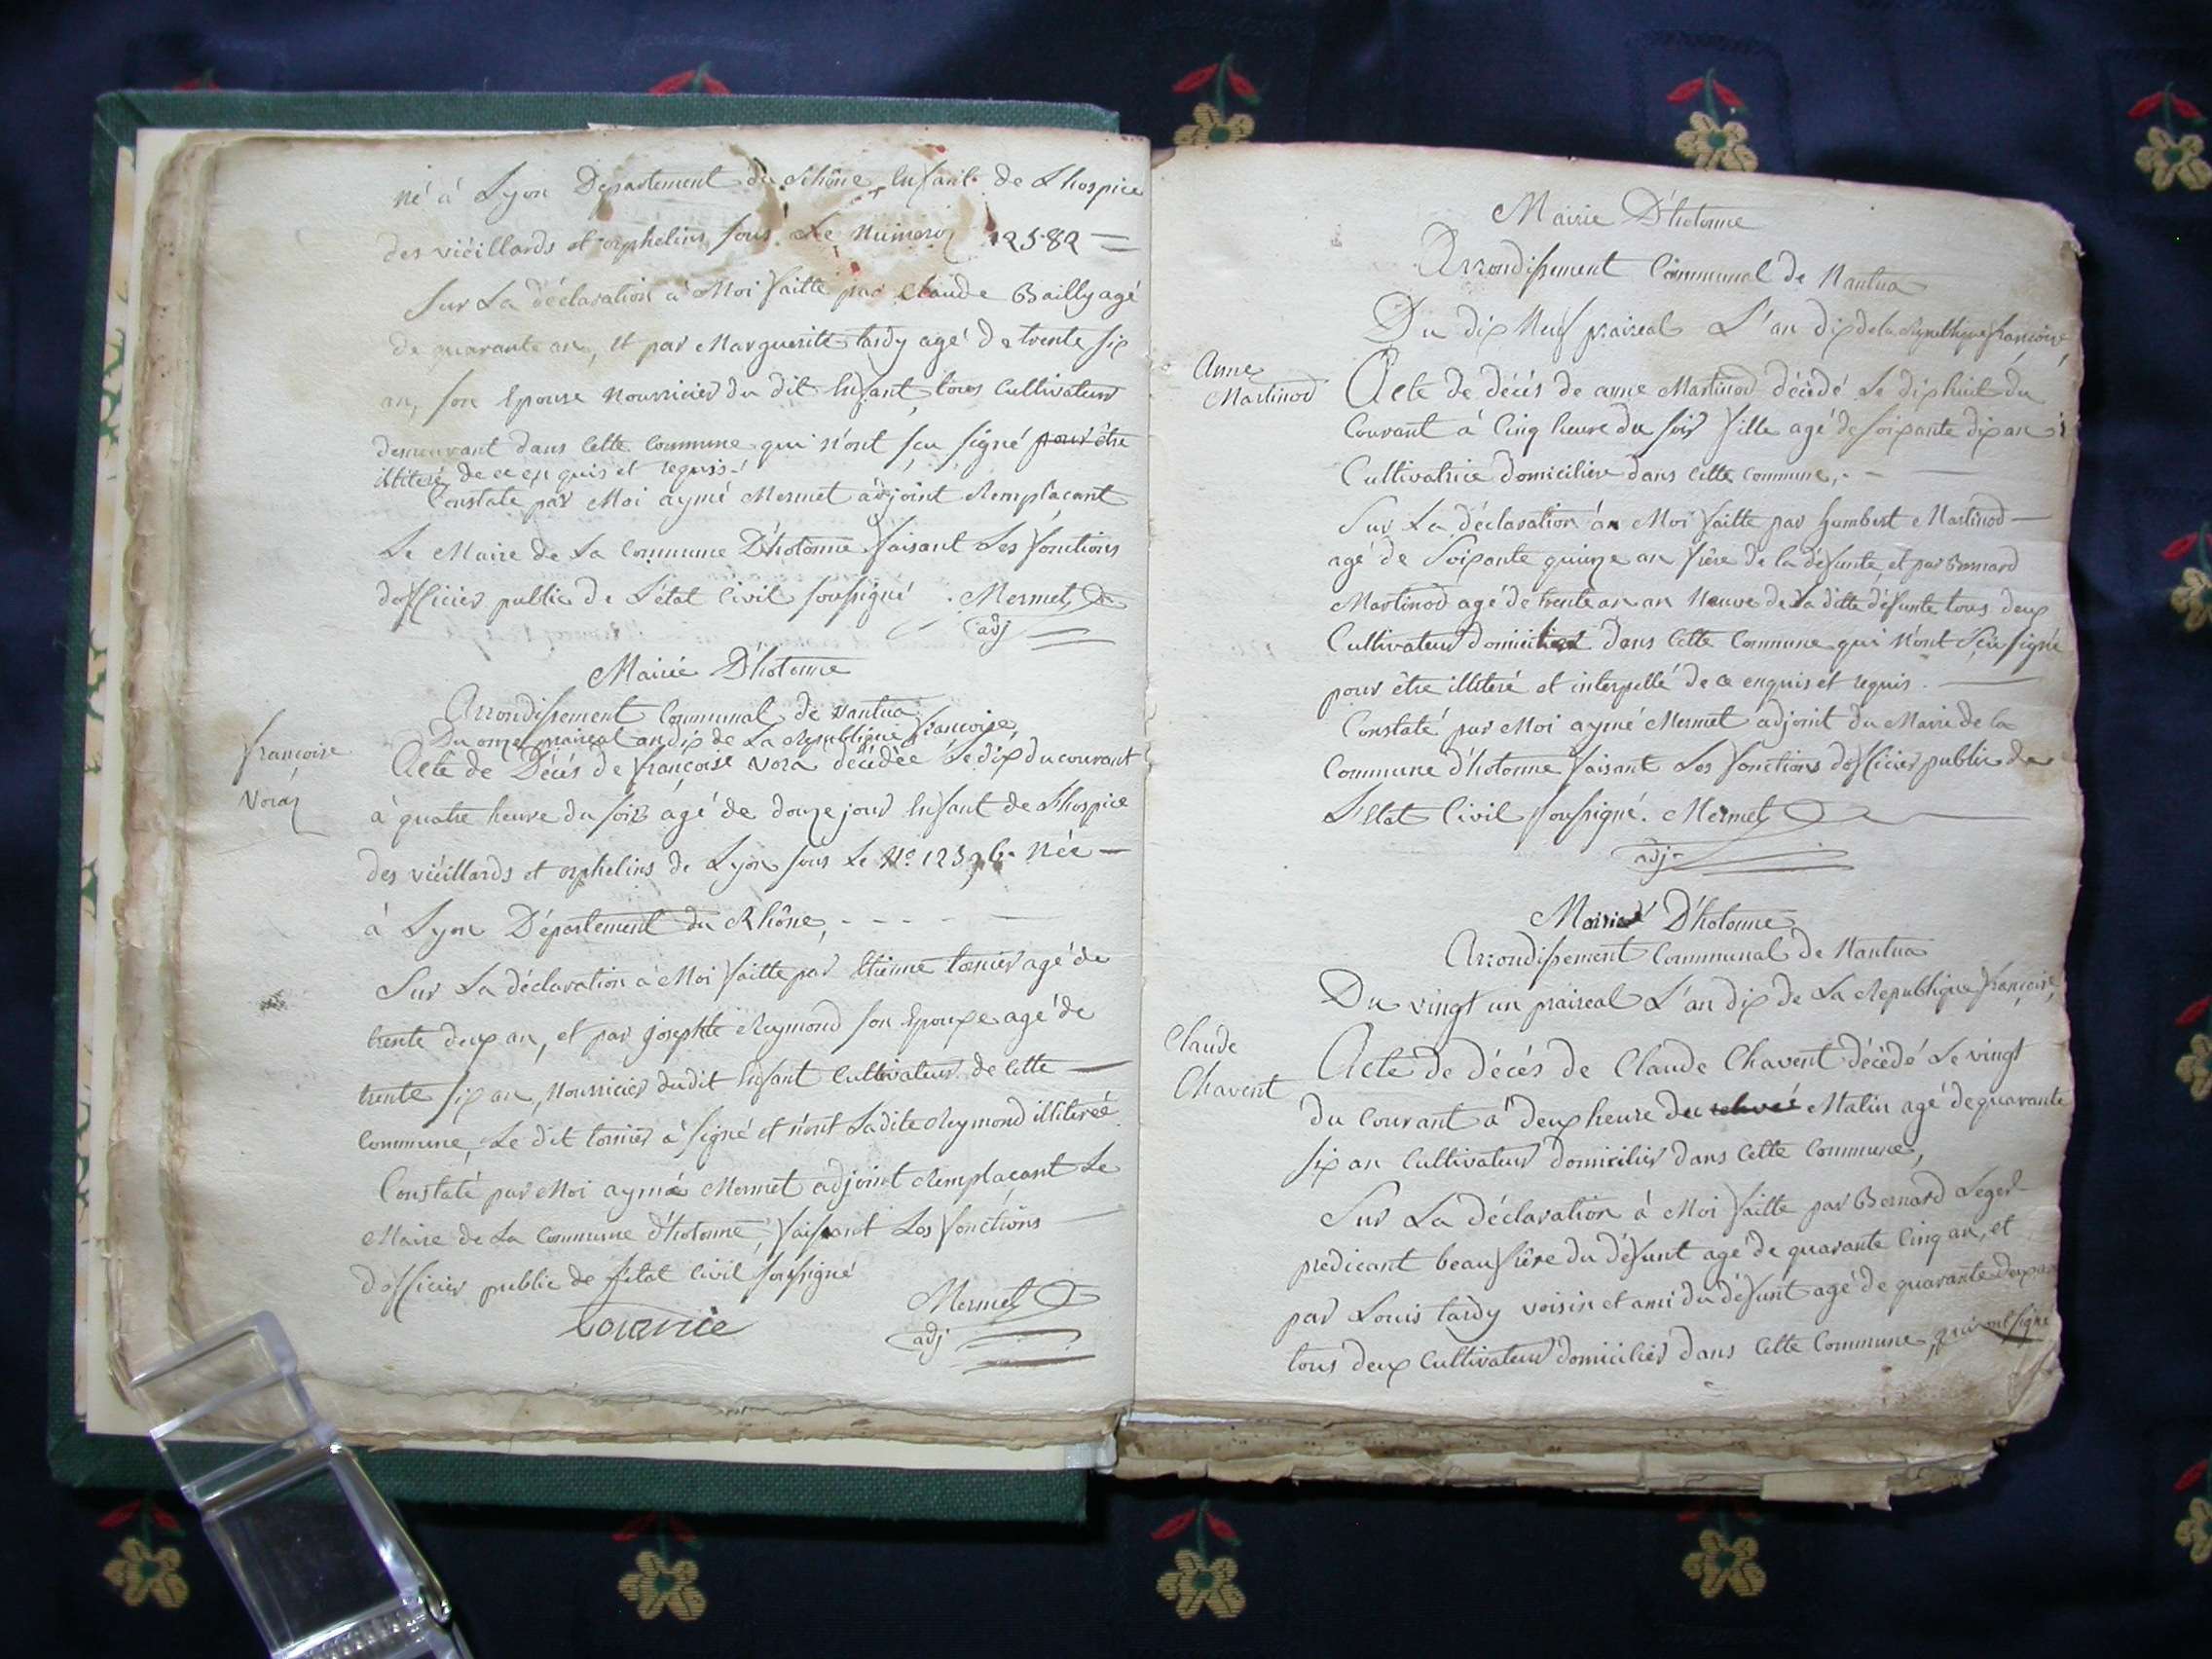 né à Lyon Département du Rhône, Enfant de Lhospice
des viéillards et orphelins sous Le Numero 12582 =
Sur La déclaration à Moi faitte par Claude Bailly agé
de quarante an, et par Marguerite tardy agé de trente six
an, son Epouse Nourricier du dit Enfant, tous Cultivateur
demeurant dans Cette Commune qui n'ont sçu signé pour être
illiteré de ce enquis et requis.
Constaté par Moi aymé Mermet adjoint Remplaçant
Le Maire de La Commune D'hotonne faisant Les fonctions
dofficier public de L'état Civil soussigné. Mermet
adj
Mairie D'hotonne
Arrondissement Communal de Nantua
Du onze praireal an dix de La Republique françoise,
françoise
Acte de Décés de françoise Vora décédée Le dix du courant
à quatre heure du soir agé de douze jour Enfant de Lhospice
des viéillards et orphelins de Lyon sous Le Nº Née —
à Lyon Département du Rhône, - - - -
Sur La déclaration à Moi faitte par Etienne agé de
trente deux an, et par Josephte Reymond son Epouxe agé de
trente six an, Nourricier dudit Enfant Cultivateur de Cette —
Commune, Le dit à signé et n'ont Ladite Reymond illiterée
Constaté par Moi aymé Mermet adjoint Remplaçant Le
Maire de La Commune d'hotonne, faissant Les fonctions —
dofficier public de L'état Civil soussigné
Mermet
adj
Mairie D'hotonne
Arrondissement Communal de Nantua
Du dix Neuf praireal L'an dix de la Republique françoise,
Anne
Martinod
Acte de décés de anne Martinod décédé Le dix huit du
Courant à Cinq heure du soir fille agé de soixante dix an
Cultivatrice domicilière dans Cette Commune, - —
Sur La déclaration à Moi faitte par humbert Martinod —
agé de Soixante quinze an frère de la défunte, et par Bernard
Martinod agé de trente an Neuve de La ditte défunte tous deux
Cultivateur domicilier dans Cette Commune qui n'ont Sçu signé
pour être illiteré et interpellé de ce enquis et requis. —
Constaté par Moi aymé Mermet adjoint du Maire de la
Commune d'hotonne faisant Les fonctions dofficier public de
L'Etat Civil soussigné. Mermet
adj
Mairie D'hotonne
Arrondissement Communal de Nantua
Du vingt un praireal L'an dix de La Republique françoise,
Claude
Chavent
Acte de décés de Claude Chavent décédé Le vingt
du Courant à deux heure du Matin agé de quarante
six an Cultivateur domicilier dans Cette Commune,
Sur La déclaration à Moi faitte par Bernard Leger
predicant beau frère du défunt agé de quarante Cinq an, et
par Louis tardy voisin et ami du défunt agé de quarante deux an
tous deux Cultivateur domicilier dans Cette Commune, qui ont signé